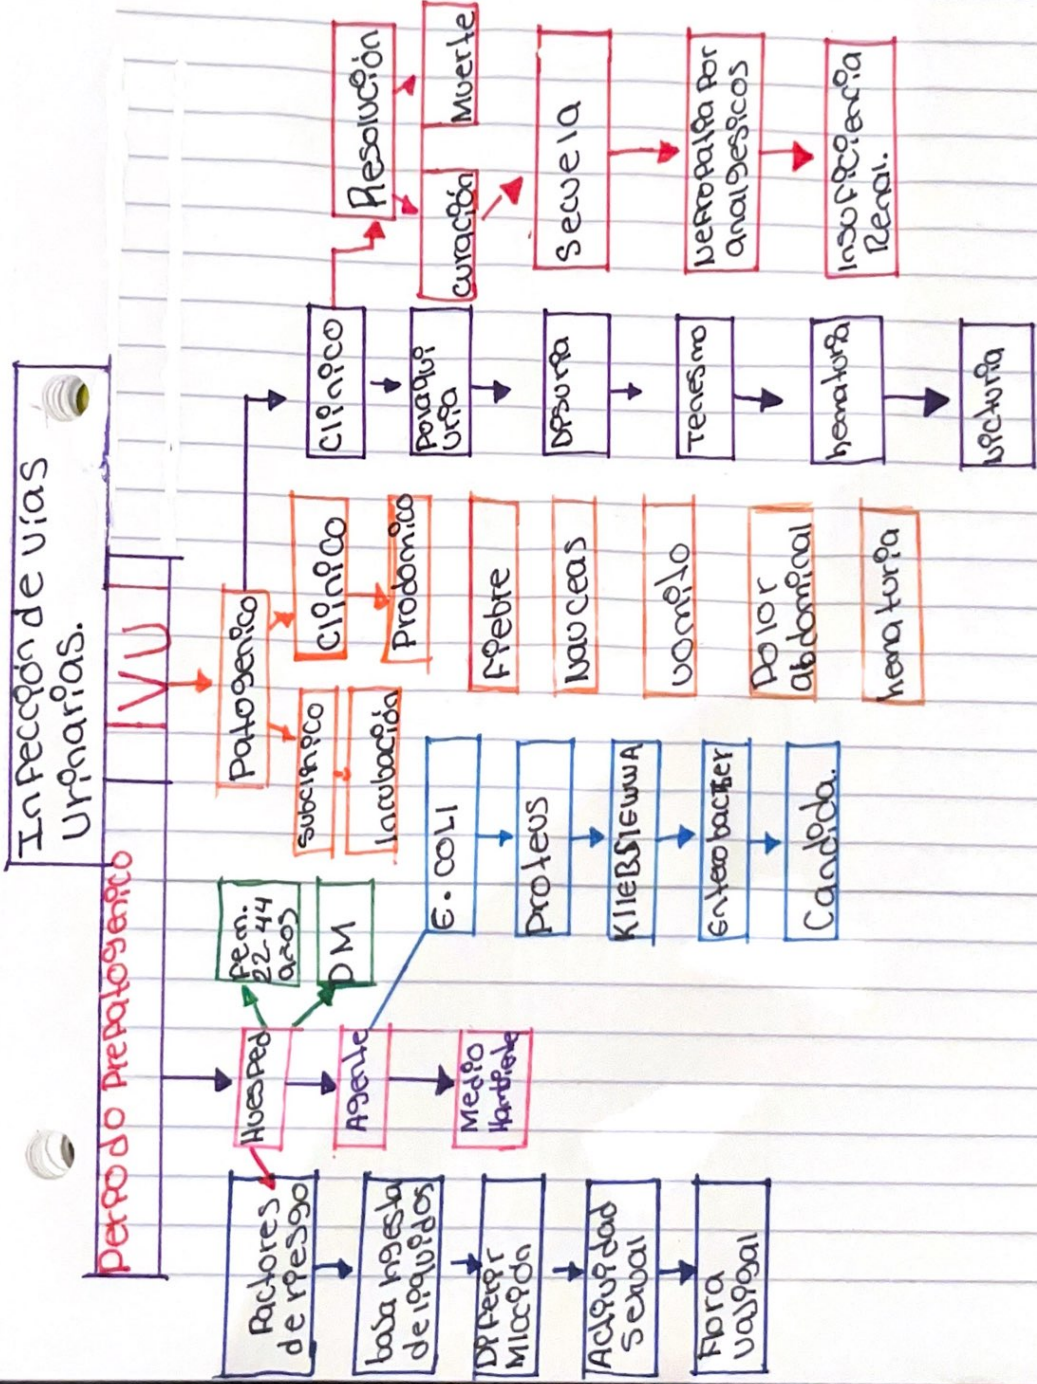 Infección de vías
Urinarias.
Período Prepatogenico
IVU
Huesped
Fem.
22-44
años
DM
Factores
de riesgo
baja ingesta
de liquidos
Diferir
Micción
Actividad
Sexual
Flora
Vaginal
Agente
Medio
Hambiente
E. COLI
Proteus
KlleBSIEWWA
Enterobacter
Candida.
Patogenico
Subclínico
Incubación
Clínico
Prodomico
fiebre
Nauceas
vomito
Dolor
abdominal
hematuria
Clínico
Polaqui
uria
Disuria
Tenesmo
hematuria
Nicturia
Resolución
curación
Muerte
Secuela
Nefropatia por
analgesicos
Insuficiencia
Renal.